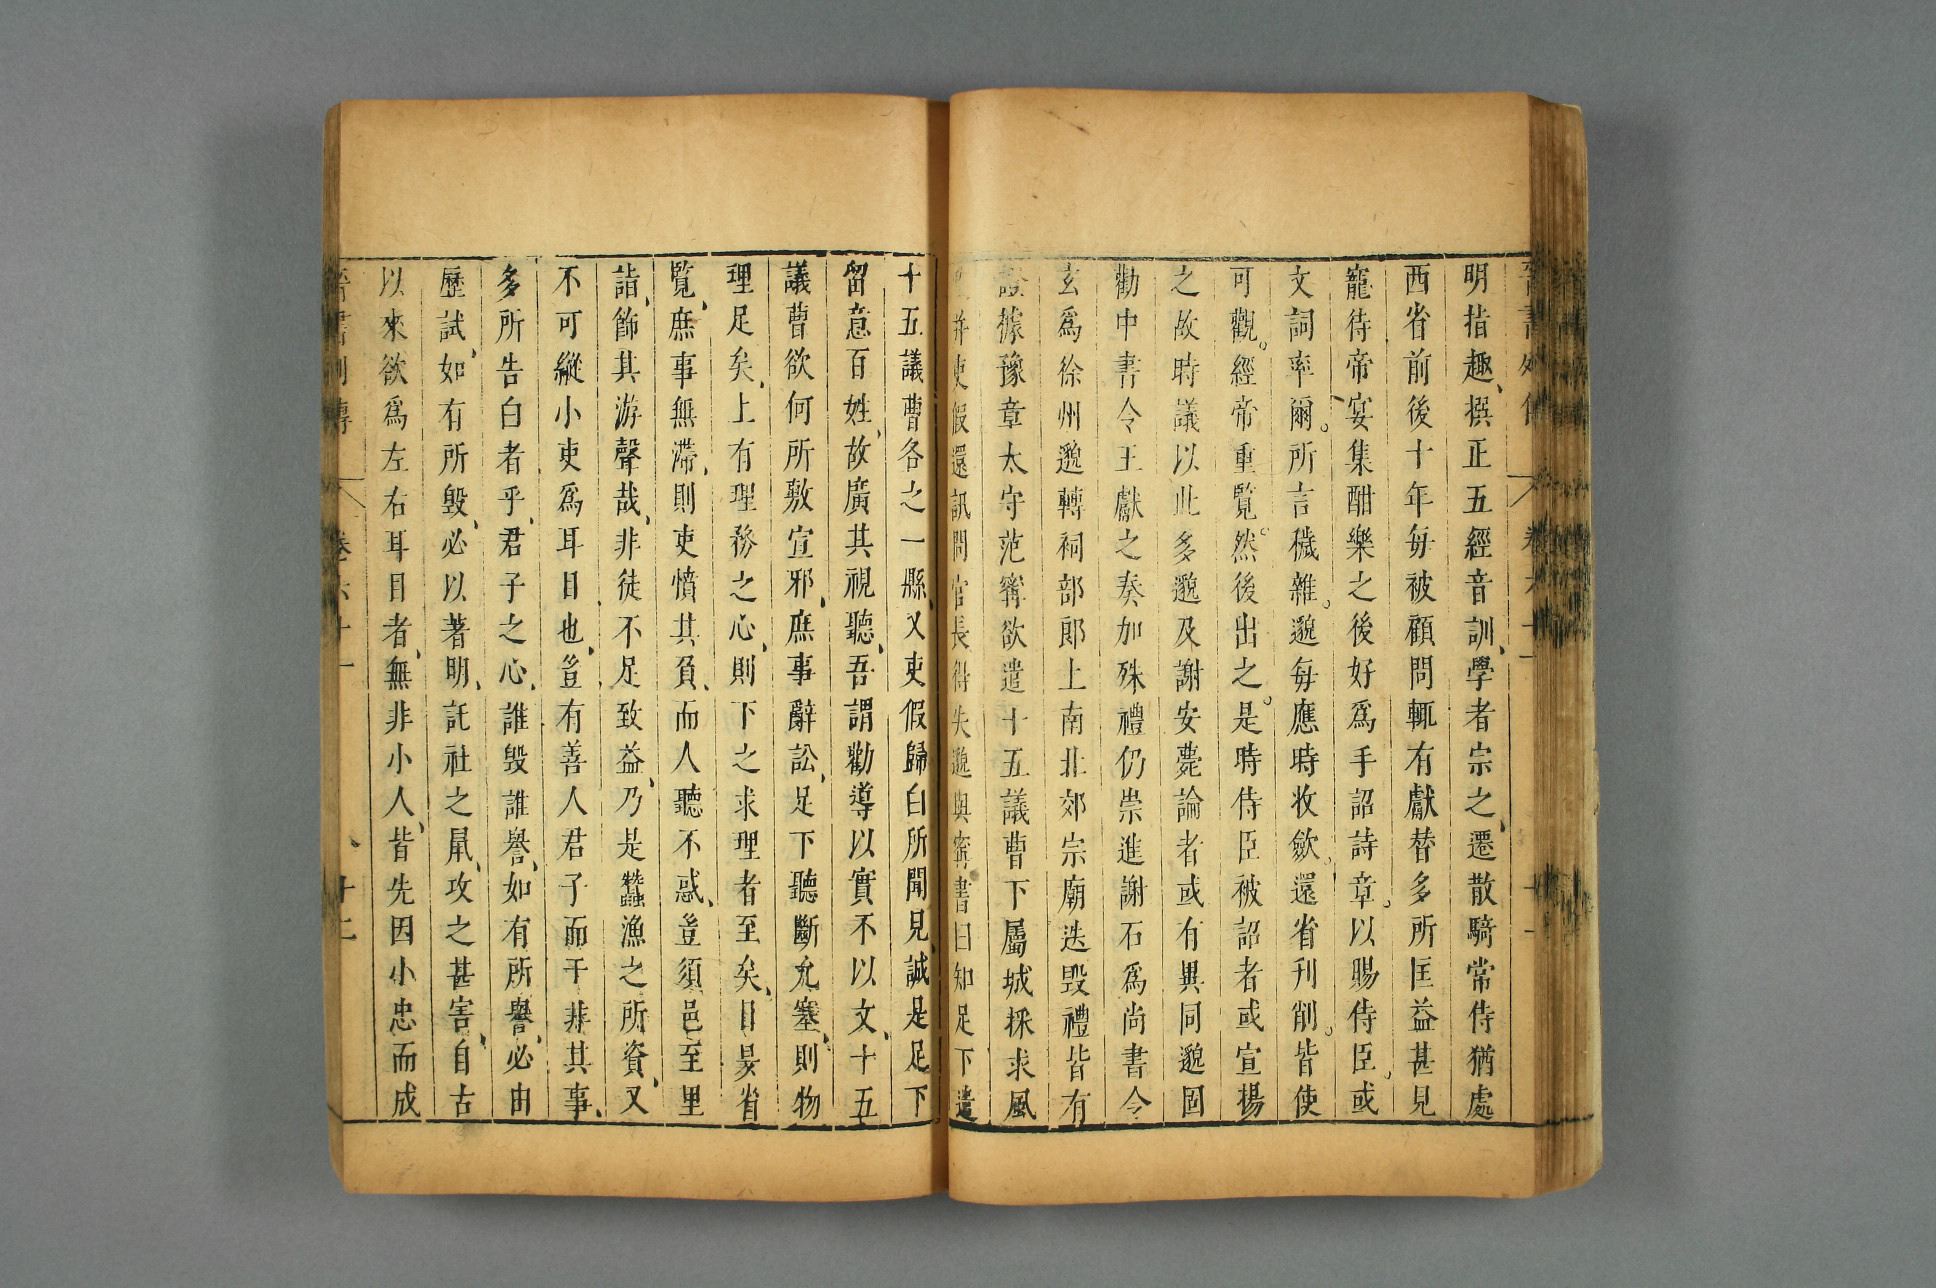 明指趣撰正五經音訓學者宗之遷散騎常侍猶處
西省前後十年每被顧問輒有獻替多所匡益甚見
寵待帝宴集酣樂之後好爲手詔詩章以賜侍臣或
文詞率爾所言穢雜邈每應時收斂還省刋削皆使
可觀經帝重覽然後出之是時侍臣被詔者或宣揚
之故時議以此多邈及謝安薨論者或有異同邈固
勸中書令王獻之奏加殊禮仍崇進謝石爲尚書令
玄爲徐州邈轉祠部郎上南北郊宗廟迭毀禮皆有
證據豫章太守范甯欲遣十五議曹下屬城採求風
并吏假還訊問官長得失邈與甯書曰知足下遣
十五議曹各之一縣又吏假歸白所聞見誠是足下
留意百姓故廣其視聽吾謂勸導以實不以文十五
議曹欲何所敷宣邪庶事辭訟足下聽斷允塞則物
理足矣上有理務之心則下之求理者至矣日昃省
覽庶事無滯則吏憤其負而人聽不惑豈須邑至里
詣飾其游聲哉非徒不足致益乃是蠶漁之所資又
不可縱小吏爲耳目也豈有善人君子而干非其事
多所告白者乎君子之心誰毀誰譽如有所譽必由
歷試如有所毀必以著明託社之鼠攻之甚害自古
以來欲爲左右耳目者無非小人皆先因小忠而成
晉書列傳 卷六十一 十二